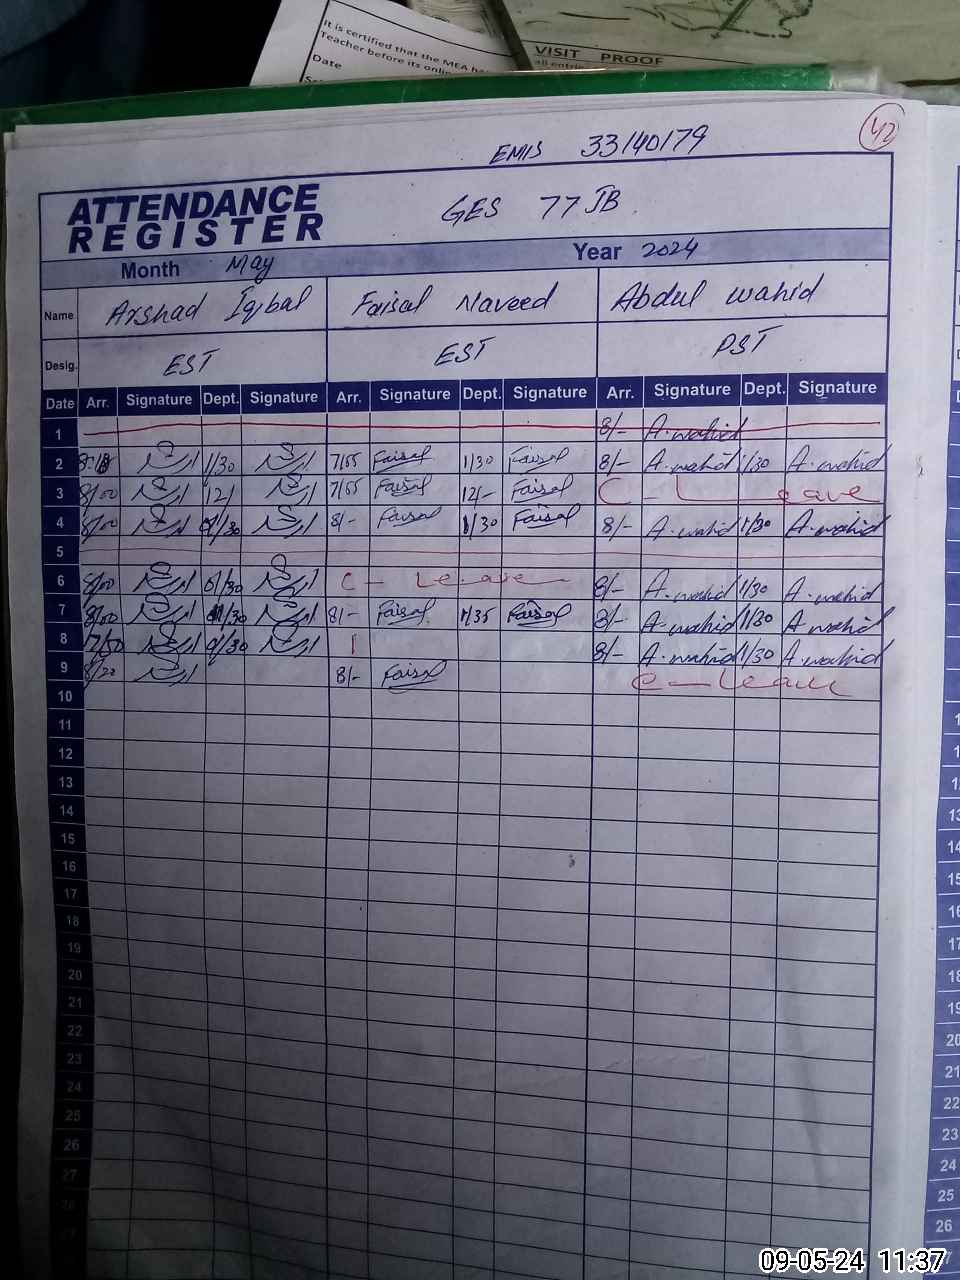 It is certified that the MEA ha
Teacher before its onlin
Date
VISIT PROOF
all entri
42
EMIS 33140179
ATTENDANCE
REGISTER
GES 77 JB
Month May Year 2024
Name Arshad Iqbal Faisal Naveed Abdul Wahid
Desig. EST EST PST
Date Arr. Signature Dept. Signature Arr. Signature Dept. Signature Arr. Signature Dept. Signature
1 8/- A.wahid
2 ارشد 1/30 ارشد 7/55 Faisal 1/30 Faisal 8/- A.wahid 1/30 A.wahid
3 8/00 ارشد 12/ ارشد 7/55 Faisal 12/- Faisal C - Leave
4 8/00 ارشد /30 ارشد 8/- Faisal 1/30 Faisal 8/- A.wahid 1/30 A.wahid
5
6 8/00 ارشد /30 ارشد C - Leave 8/- A.wahid 1/30 A.wahid
7 8/00 ارشد /30 ارشد 8/- Faisal 1/35 Faisal 8/- A.wahid 1/30 A.wahid
8 7/50 ارشد /30 ارشد 8/- A.wahid 1/30 A.wahid
9 8/20 ارشد 8/- Faisal C - Leave
10
11
12
13
14
15
16
17
18
19
20
21
22
23
24
25
26
27
09-05-24 11:37